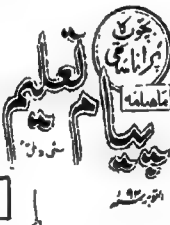 بچوں کا
پرانا ساتھی
ماہنامہ
پیام تعلیم
نئی دہلی